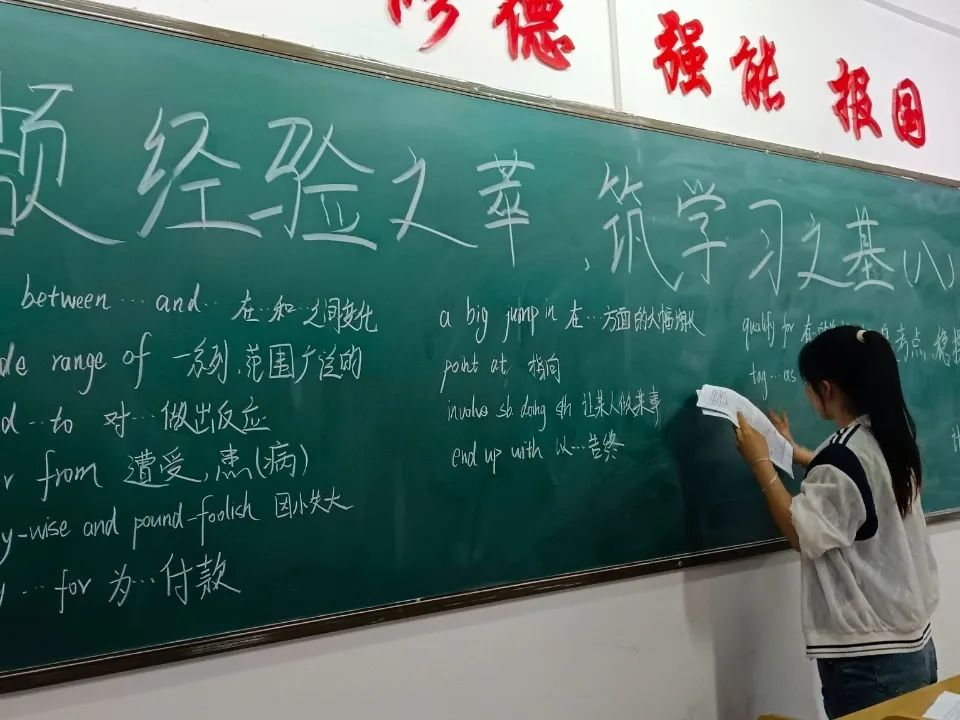 修德 强能 报国
经验之萃、筑学习之基(八)
between … and … 在…和…之间变化
range of 一系列、范围广泛的
d … to 对…做出反应
from 遭受、患(病)
y-wise and pound-foolish 因小失大
… for 为…付款
a big jump in 在…方面的大幅增长
point at 指向
involve sb. doing sth 让某人做某事
end up with 以…告终
qualify for
tag … as